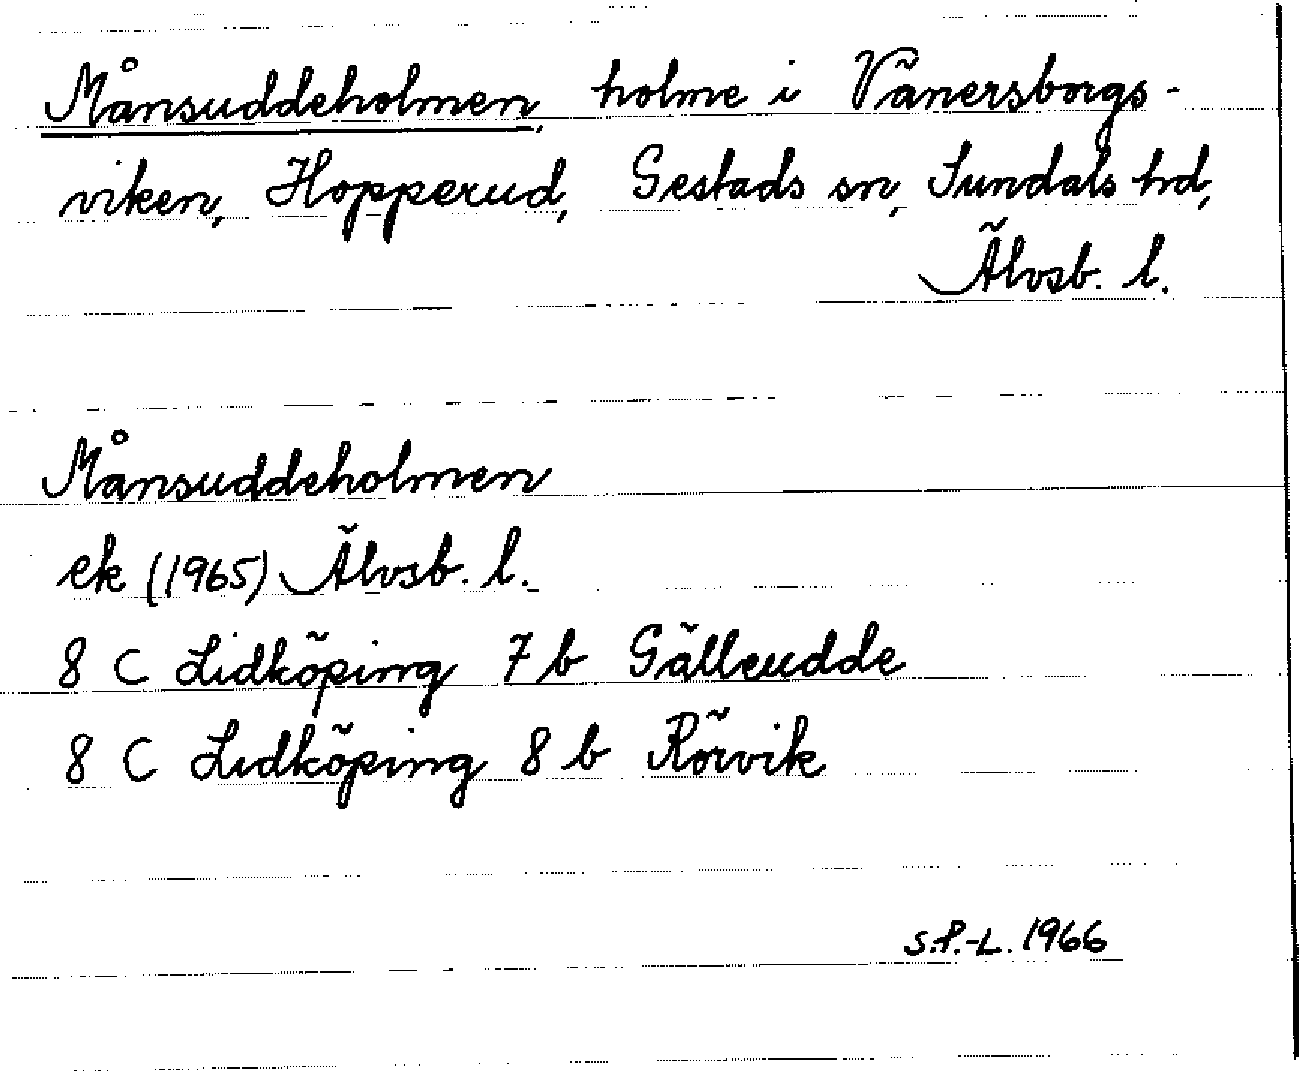 Månsuddeholmen, holme i Vänersborgs-
viken, Hopperud, Gestads sn, Sundals hd,
Älvsb. l.
Månsuddeholmen
ek (1965) Älvsb. l.
8 C Lidköping 7 b Gälleudde
8 C Lidköping 8 b Rörvik
S.P.-L. 1966